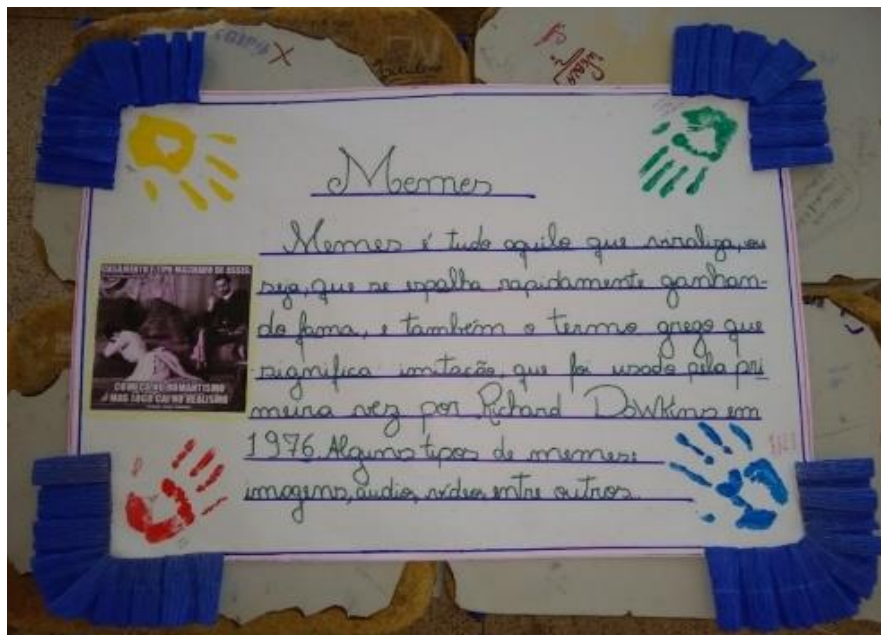 Memes
Memes é tudo aquilo que viraliza, ou
seja, que se espalha rapidamente ganhan-
do fama, e também o termo grego que
significa imitação, que foi usado pela pri
meira vez por Richard Dowkins em
1976. Alguns tipos de memes:
imagens, áudio, vídeo, entre outros.
CASAMENTO É TIPO MACHADO DE ASSIS,
COMEÇA NO ROMANTISMO
MAS LOGO CAI NO REALISMO